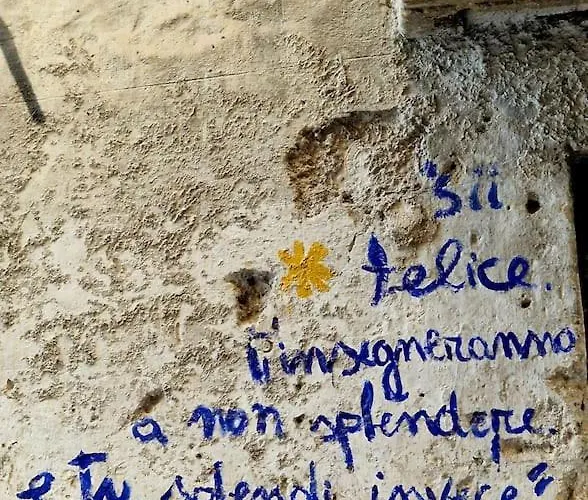 "Sii
felice.
T'insegneranno
a non splendere.
e Tu splendi, invece"